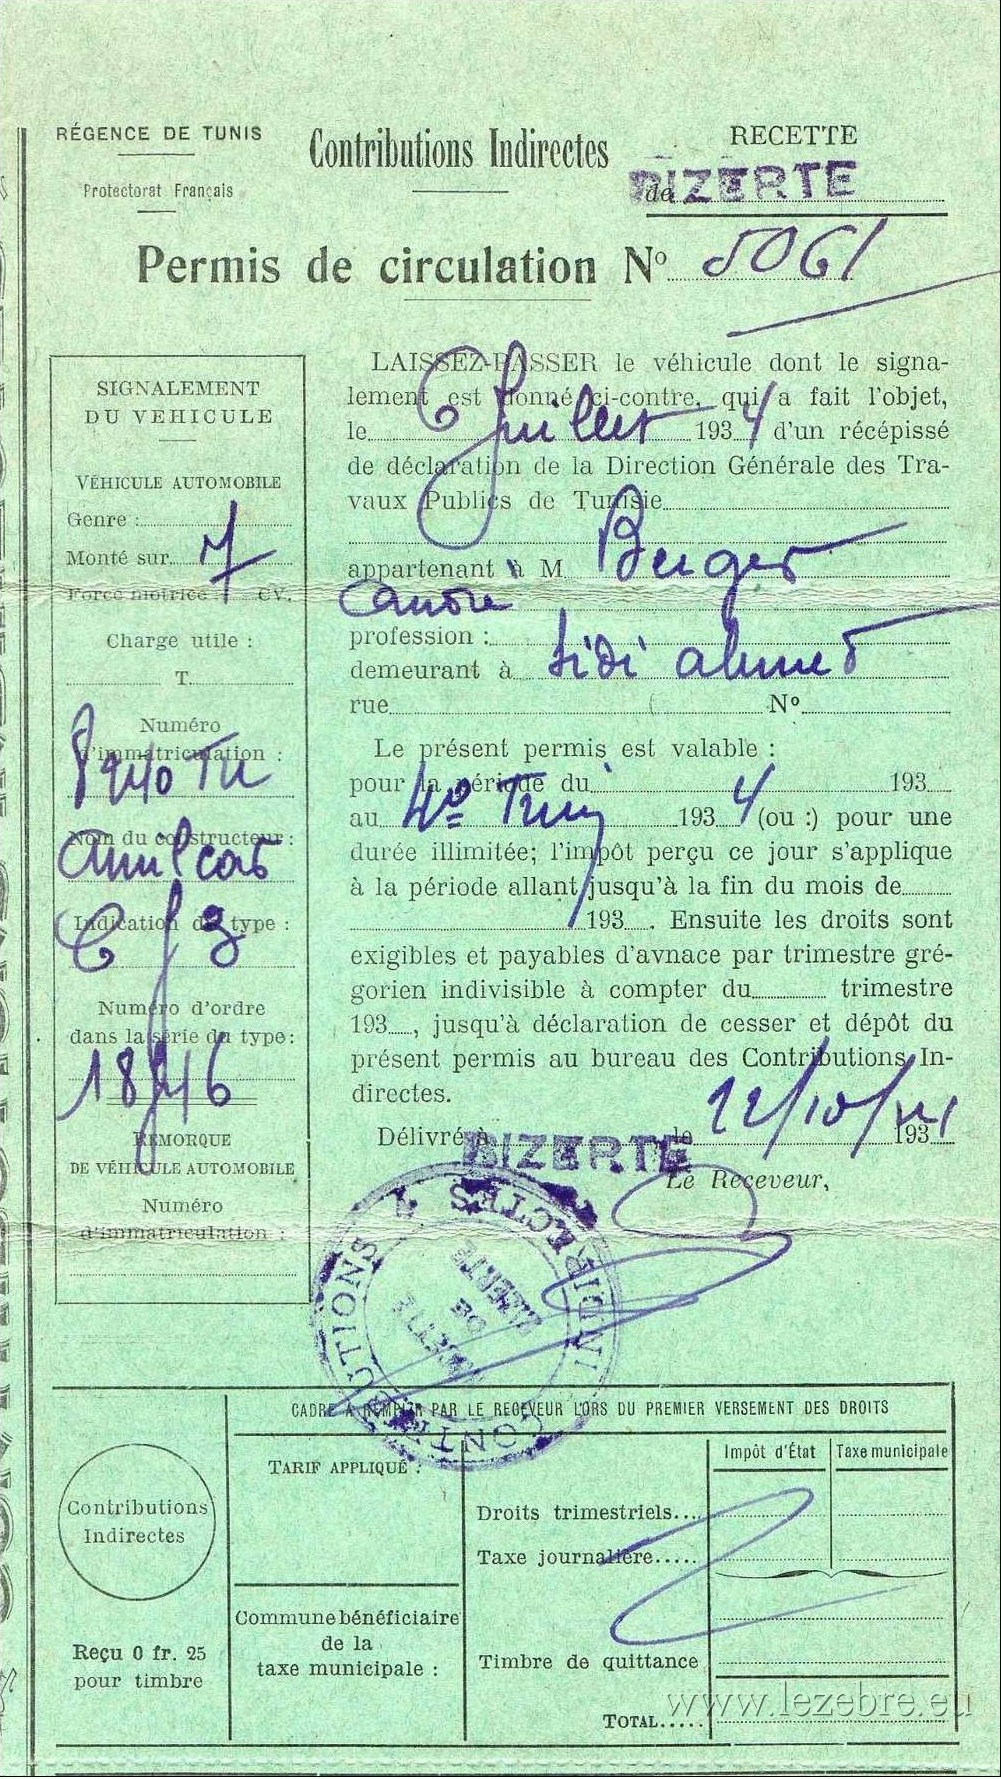 RÉGENCE DE TUNIS
Protectorat Français
Contributions Indirectes
RECETTE
de BIZERTE
Permis de circulation Nº 5061
SIGNALEMENT
DU VEHICULE
VÉHICULE AUTOMOBILE
Genre :
Monté sur
Force motrice : 7 CV.
Charge utile :
T
Numéro
d'immatriculation :
Nom du constructeur :
Amilcar
Indication du type :
C 3
Numéro d'ordre
dans la série du type :
REMORQUE
DE VÉHICULE AUTOMOBILE
Numéro
d'immatriculation :
LAISSEZ-PASSER le véhicule dont le signa-
lement est donné ci-contre, qui a fait l'objet,
le Juillet 1934 d'un récépissé
de déclaration de la Direction Générale des Tra-
vaux Publics de Tunisie
appartenant à M Berger
profession :
demeurant à Sidi ahmed
rue Nº
Le présent permis est valable :
pour la période du 193
au 4º Trim 1934 (ou :) pour une
durée illimitée; l'impôt perçu ce jour s'applique
à la période allant jusqu'à la fin du mois de
193 . Ensuite les droits sont
exigibles et payables d'avnace par trimestre gré-
gorien indivisible à compter du trimestre
193 , jusqu'à déclaration de cesser et dépôt du
présent permis au bureau des Contributions In-
directes.
Délivré à BIZERTE le 22/10/ 193
Le Receveur,
CONTRIBUTIONS INDIRECTES A
RECETTE
DE
BIZERTE
CADRE A REMPLIR PAR LE RECEVEUR LORS DU PREMIER VERSEMENT DES DROITS
Contributions
Indirectes
Reçu 0 fr. 25
pour timbre
TARIF APPLIQUÉ :
Commune bénéficiaire
de la
taxe municipale :
Impôt d'État
Taxe municipale
Droits trimestriels...
Taxe journalière.....
Timbre de quittance
TOTAL.....
www.lezebre.eu